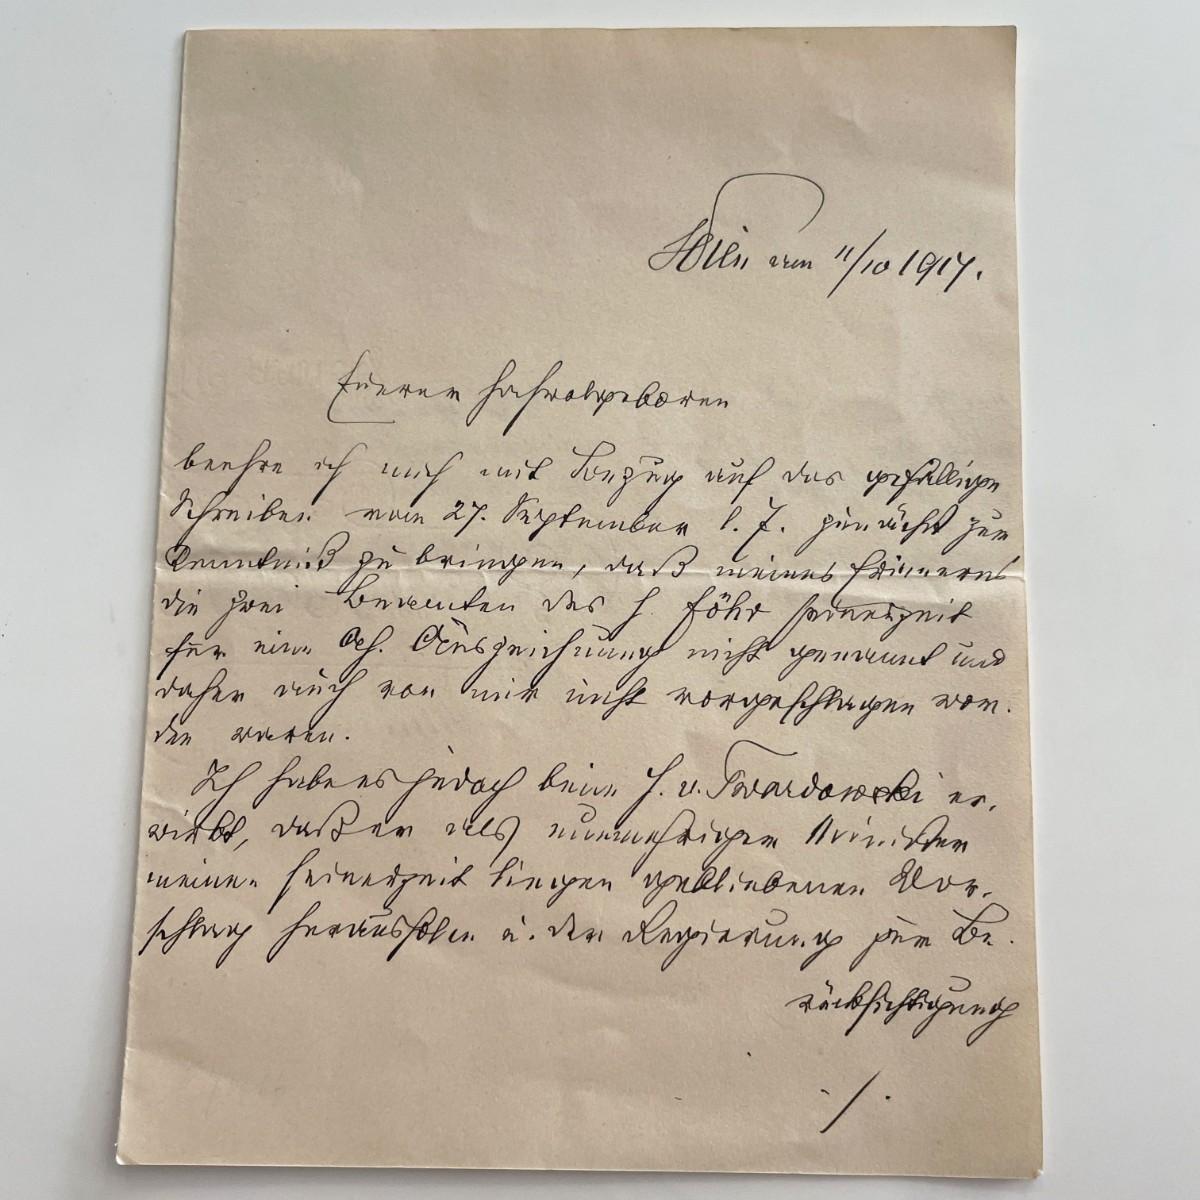 Wien am 11/10 1917.
Euerer Hochwolgeboren
beehre ich mich mit Bezug auf das gefällige
Schreiben vom 27. September l. J. zunächst zur
Kenntniß zu bringen, daß meines Erinnerns
die zwei Beamten des H. Föhr seinerzeit
für eine Ah. Auszeichnung nicht genannt und
daher auch von mir nicht vorgeschlagen wor-
den waren.
Ich habe es jedoch beim H. v. Twardowski er-
wirkt, daß er als nunmehriger Minister
meinen seinerzeit liegen gebliebenen Vor-
schlag herausholen u. der Regierung zur Be-
rücksichtigung
./.